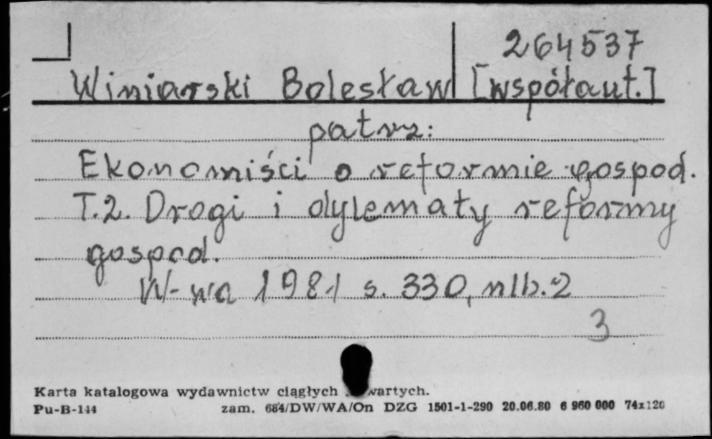 264537
Winiarski Bolesław [współaut.]
patrz:
Ekonomiści o reformie gospod.
T.2. Drogi i dylematy reformy
gospod.
W-wa 1981 s. 330, nlb. 2
3
Karta katalogowa wydawnictw ciągłych wartych.
Pu-B-144 zam. 684/DW/WA/On DZG 1501-1-290 20.06.80 6 960 000 74x120